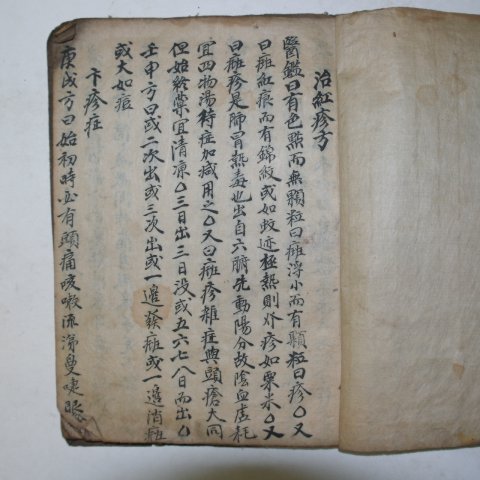 治紅疹方
醫鑑曰有色點而無顆粒曰斑浮小而有顆粒曰疹○又
曰斑紅痕而有錦紋或如蚊迹極熱則外疹如粟米○又
曰斑疹是肺胃熱毒也出自六腑先動陽分故陰血虛耗
宜四物湯待症加減用之○又曰斑疹雜症與頭瘡大同
但始終藥宜清凉○三日出三日沒或五六七八日而出○
壬申方曰或二次出或三次出或一邊發斑或一邊消斑
或大如痕
卞疹症
庚戌方曰始初時必有頭痛咳嗽流涕